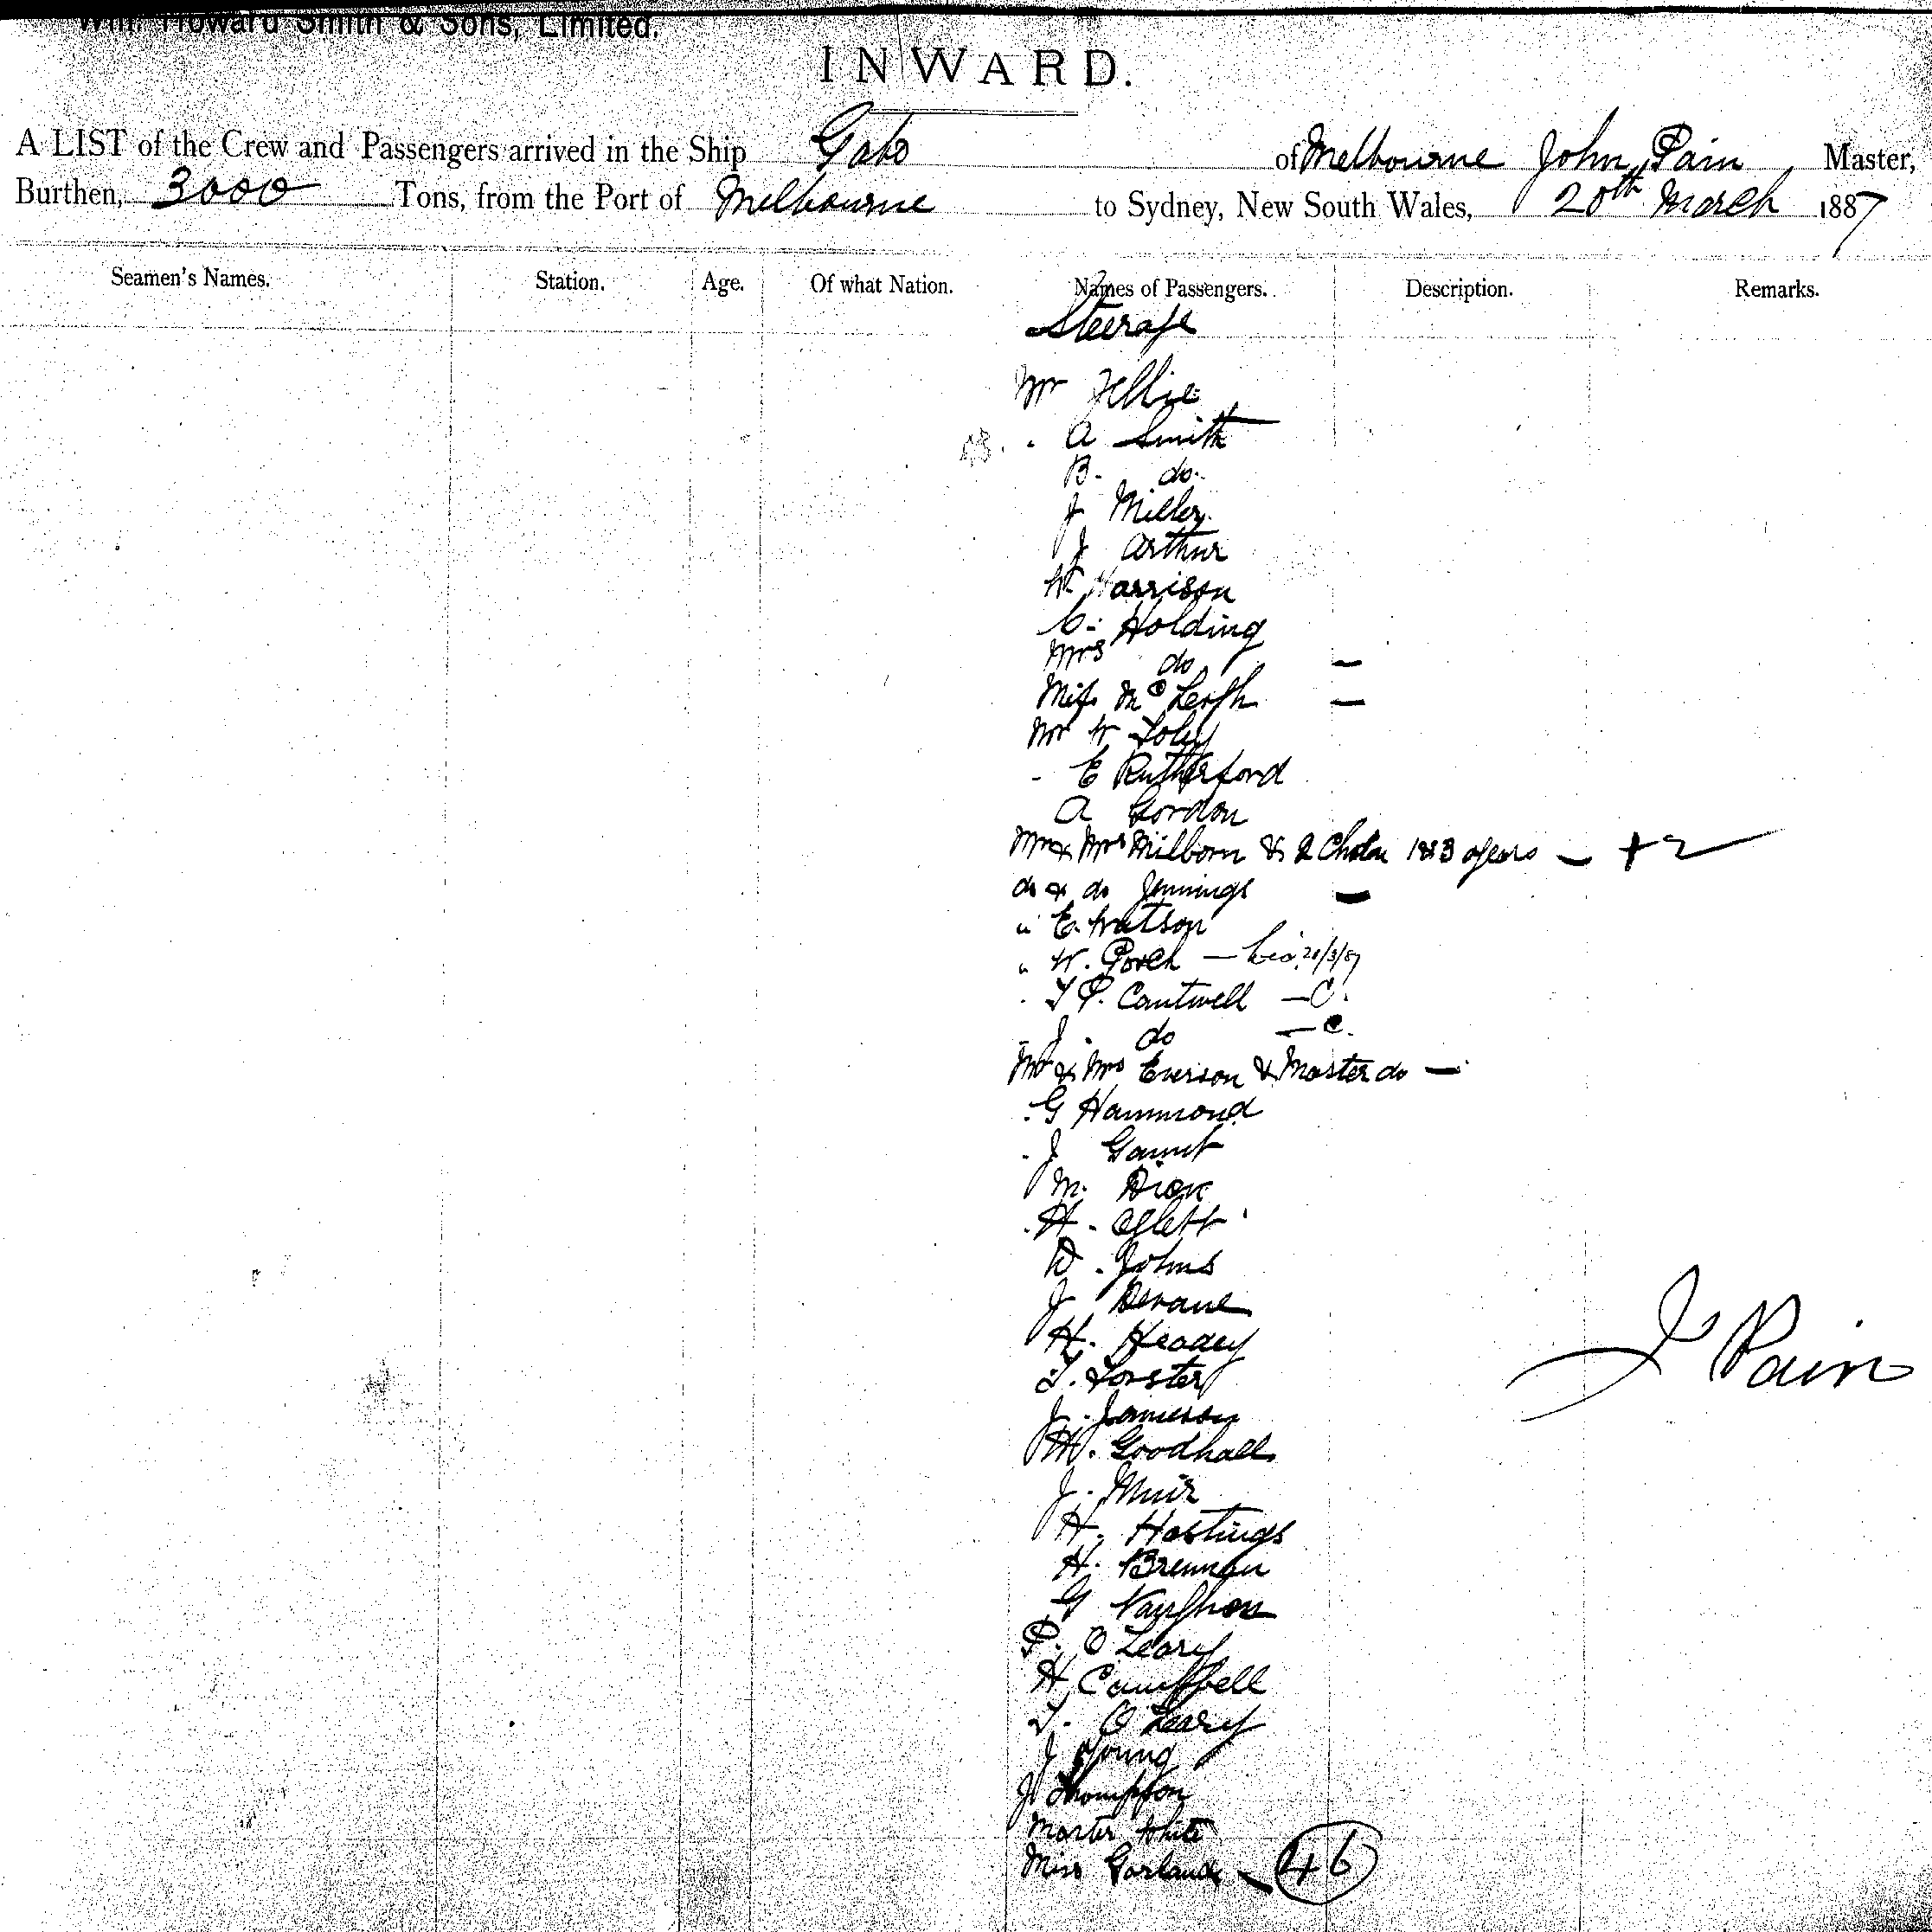 Wm. Howard Smith & Sons, Limited.
INWARD.
A LIST of the Crew and Passengers arrived in the Ship Gabo of Melbourne John Pain Master,
Burthen, 3000 Tons, from the Port of Melbourne to Sydney, New South Wales, 20th March 1887
Seamen's Names. Station. Age. Of what Nation. Names of Passengers. Description. Remarks.
Steerage
Mr Jellie
" A Smith
B. do.
J Miller
J Arthur
W. Harrison
C. Holding
Mrs do —
Miss Mc —
Mr W Foley
- E Rutherford
A Gordon
Mr & Mrs Milborn & 2 1 & 3 years — + 2
do & do Jennings —
" E. Watson
" W. Porch — 20/3/87
. T P. Cantwell — C.
- J. do — C.
Mr & Mrs Everson & Master do —
. G Hammond
. J Gaunt
M. Dick
. H.
D. Johns
J Devane
H. Headey
T. Forster
J. Jamieson
H. Goodhall
J. Muir
H. Hastings
H. Brennan
G Vaughan
P. O Leary
H Campbell
T. O Leary
J Young
J Thompson
Master White
Miss Garland — 46
J Pain